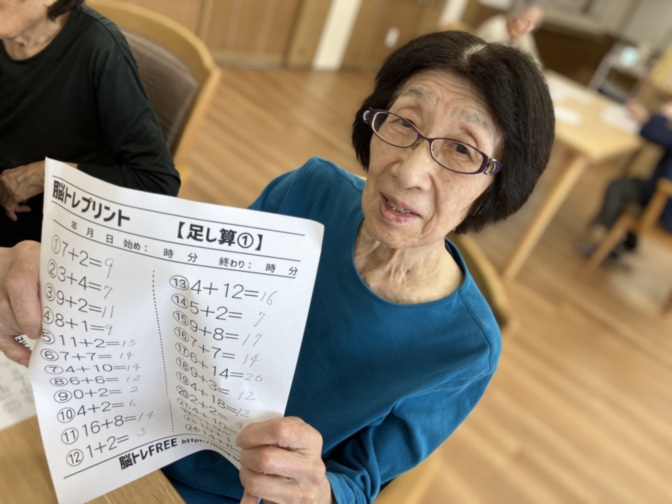 脳トレプリント
【足し算①】
年 月 日 始め： 時 分 終わり： 時 分
①7+2=9
②3+4=7
③9+2=11
④8+1=9
⑤11+2=13
⑥7+7=14
⑦4+10=14
⑧6+6=12
⑨0+2=2
⑩4+2=6
⑪16+8=14
⑫1+2=3
⑬4+12=16
⑭5+2=7
⑮9+8=17
⑯7+7=14
⑰6+14=20
⑱9+3=12
⑲4+18=
⑳2+2=
脳トレFREE